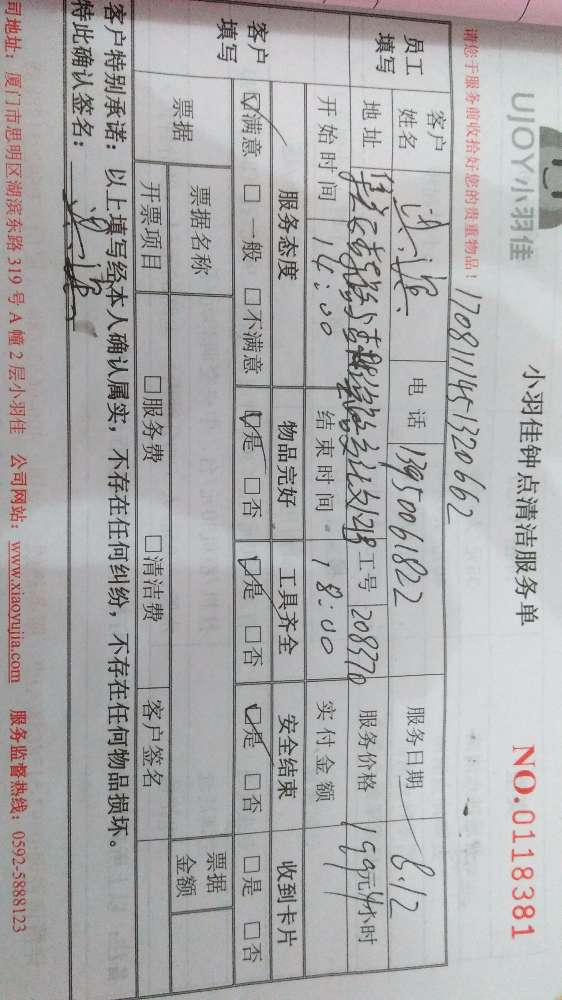 UJOY小羽佳
小羽佳钟点清洁服务单
NO.0118381
请您于服务前收拾好您的贵重物品!
1708111451320662
员工填写
客户姓名
电话 13950061822
服务日期 8.12
地址
工号 208370
服务价格 199元/4小时
开始时间 14:00
结束时间 18:00
实付金额
客户填写
服务态度 物品完好 工具齐全 安全结束 收到卡片
☑满意 □一般 □不满意 ☑是 □否 ☑是 □否 ☑是 □否 □是 □否
票据 票据名称 票据金额
开票项目 □服务费 □清洁费 客户签名
客户特别承诺:以上填写经本人确认属实,不存在任何纠纷,不存在任何物品损坏。
特此确认签名:
司地址:厦门市思明区湖滨东路 319 号 A 幢 2 层小羽佳 公司网站:www.xiaoyujia.com 服务监督热线:0592-5888123